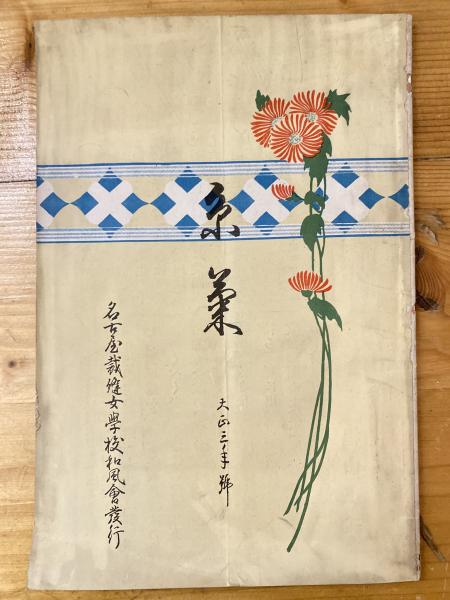 糸菊
大正三年號
名古屋裁縫女學校和風會發行